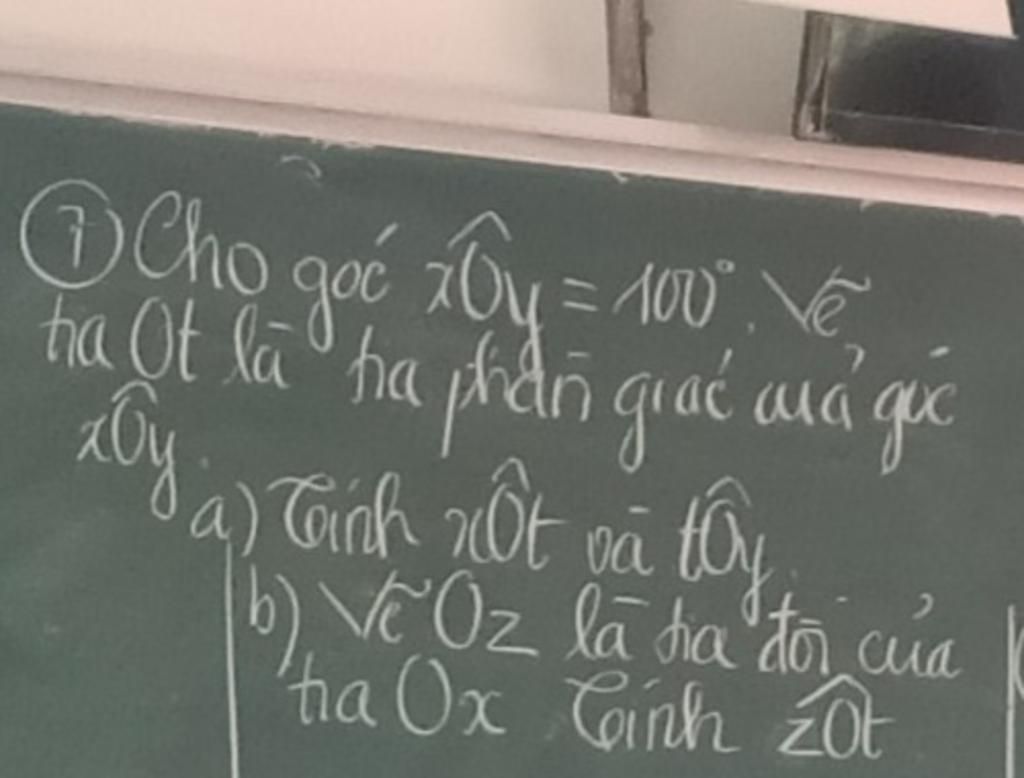 ⑦ Cho góc xÔy = 100°. Vẽ
tia Ot là tia phân giác của góc
xÔy.
a) Tính xÔt và tÔy.
b) Vẽ Oz là tia đối của
tia Ox Tính zÔt